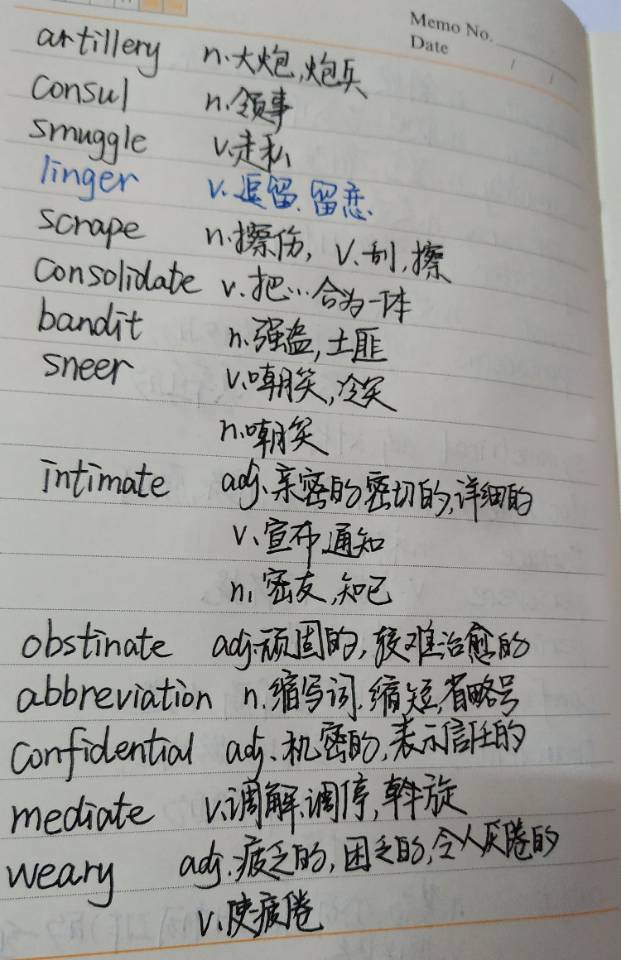 Memo No.
Date / /
artillery n.大炮,炮兵
consul n.领事
smuggle v.走私
linger v.逗留.留恋.
scrape n.擦伤, v.刮,擦
consolidate v.把…合为一体
bandit n.强盗,土匪
sneer v.嘲笑,冷笑
n.嘲笑
intimate adj.亲密的密切的,详细的
v.宣布,通知
n.密友,知己
obstinate adj.顽固的,较难治愈的
abbreviation n.缩写词.缩短,省略号
confidential adj.机密的,表示信任的
mediate v.调解.调停,斡旋
weary adj.疲乏的,困乏的,令人厌倦的
v.使疲倦